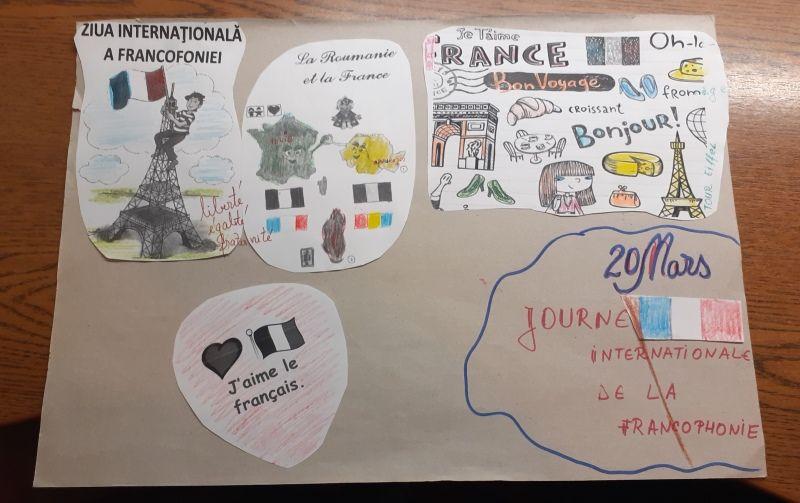 ZIUA INTERNAŢIONALĂ
A FRANCOFONIEI
liberté
egalite
fraternité
La Roumanie
et la France
Je T'aime
FRANCE
Bon Voyage
Oh-la
fromage
croissant
Bonjour!
TOUR Eiffel
20 Mars
JOURNE
INTERNATIONALE
DE LA
FRANCOPHONIE
J'aime le
français.